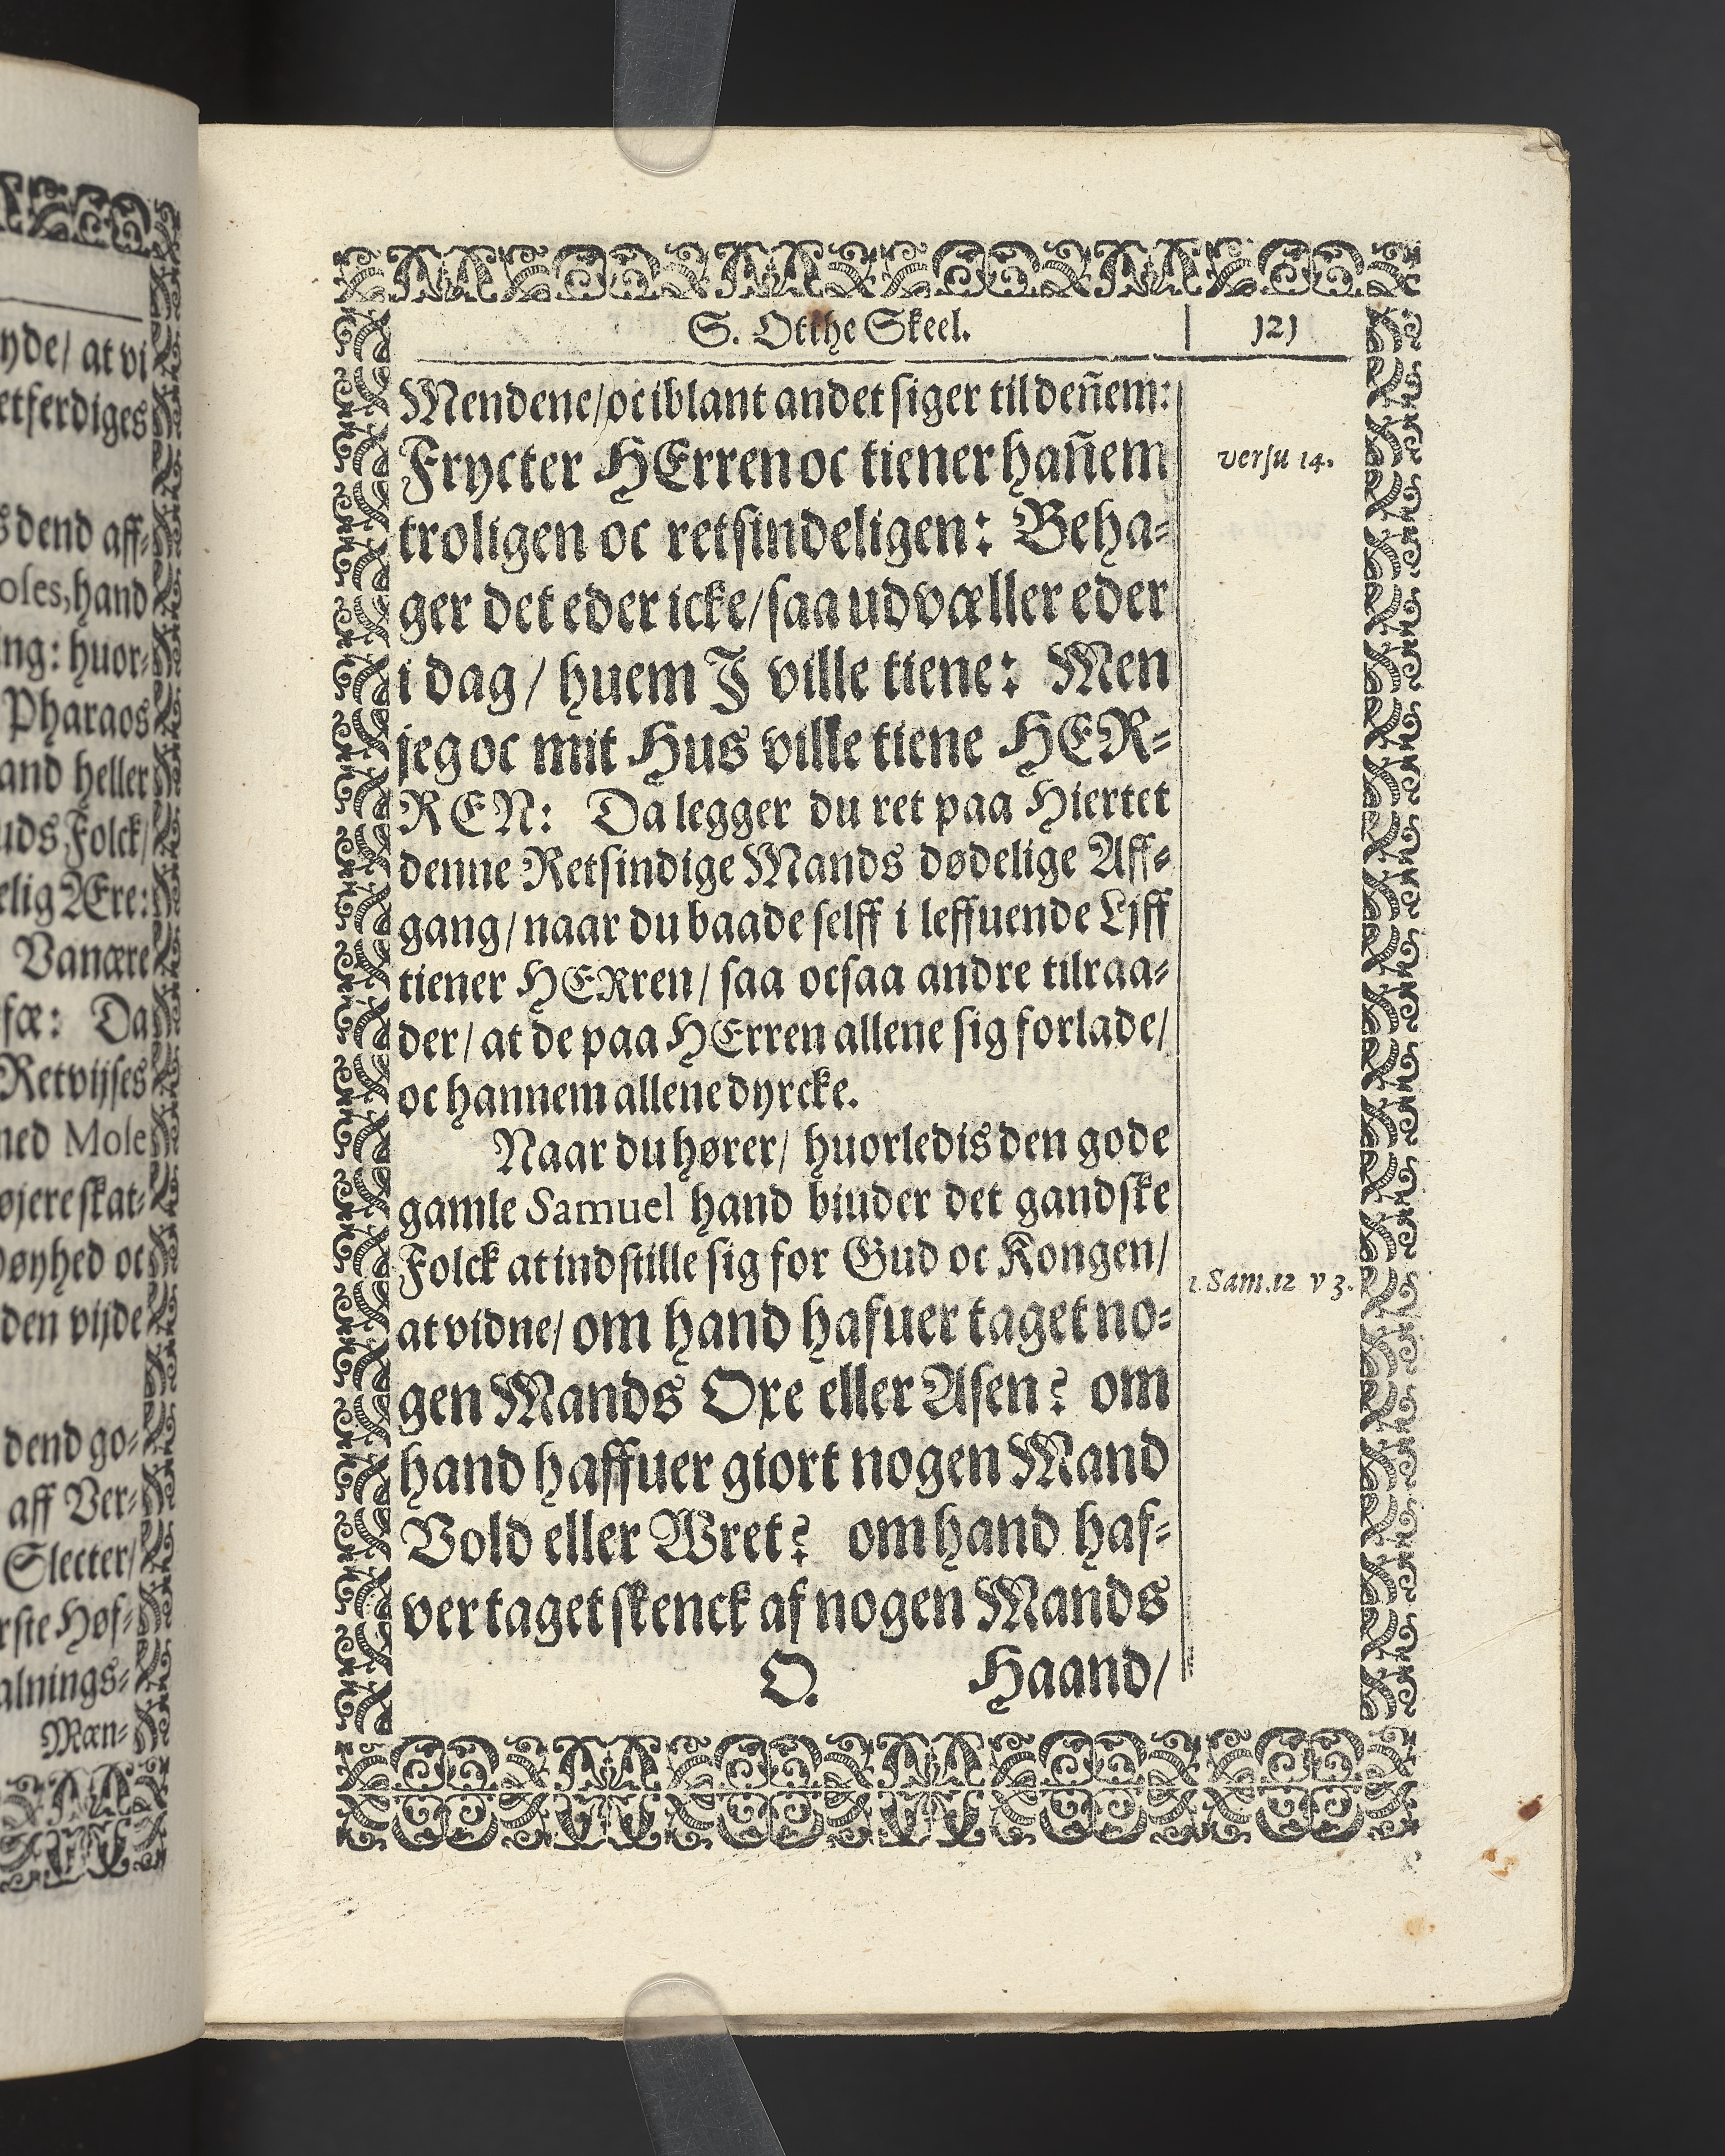 yde/ at vi
etferdiges
s dend aff-
oles, hand
ng: huor-
Pharaos
and heller
uds Folck/
elig Ære:
Vanære
fæ: Da
Retvijses
ned Mose
øjere skat-
øyhed oc
den vijde
dend go-
aff Ver-
Slecter/
rste Høf-
alnings-
Mæn-
S. Otthe Skeel.
121
Mendene/ oc iblant andet siger til deñem:
Frycter HErren oc tiener hañem
versu 14.
troligen oc retsindeligen: Beha-
ger det eder icke/ saa udvæller eder
i dag/ huem J ville tiene: Men
jeg oc mit Hus ville tiene HER-
REN: Da legger du ret paa Hiertet
denne Retsindige Mands dødelige Aff-
gang/ naar du baade selff i leffuende Liff
tiener HERren/ saa ocsaa andre tilraa-
der/ at de paa HErren allene sig forlade/
oc hannem allene dyrcke.
Naar du hører/ huorledis den gode
gamle Samuel hand biuder det gandske
Folck at indstille sig for Gud oc Kongen/
1. Sam. 12 v 3.
at vidne/ om hand hafuer taget no-
gen Mands Oxe eller Asen? om
hand haffuer giort nogen Mand
Vold eller Wret? om hand haf-
ver taget skenck af nogen Mands
O.
Haand/